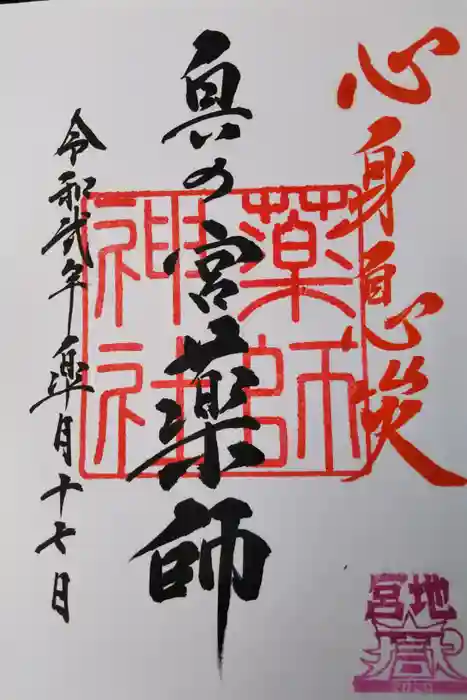 心身息災
奥の宮薬師
薬師
神社
令和弐年皐月十七日
宮地
嶽